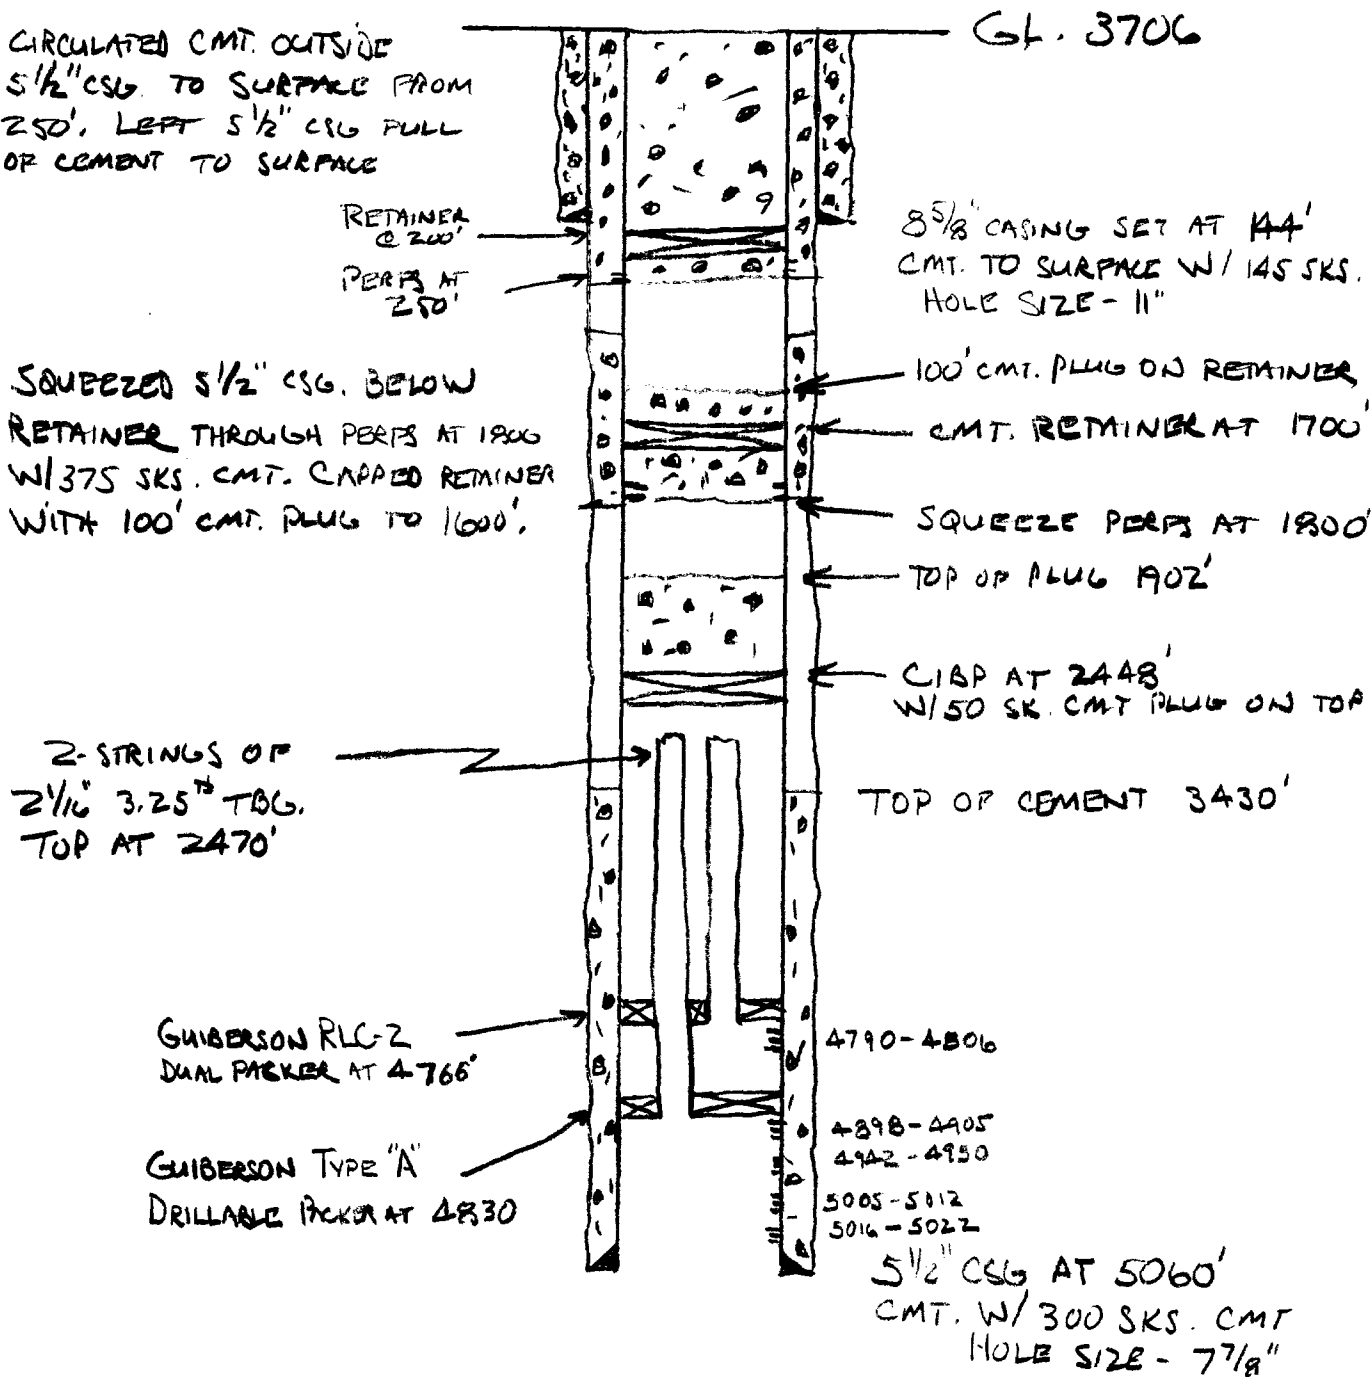 GL. 3706
CIRCULATED CMT. OUTSIDE
5 1/2" CSG. TO SURFACE FROM
250'. LEFT 5 1/2" CSG FULL
OF CEMENT TO SURFACE
RETAINER
@ 200'
PERFS AT
250'
8 5/8" CASING SET AT 144'
CMT. TO SURFACE W/ 145 SKS.
HOLE SIZE - 11"
SQUEEZED 5 1/2" CSG. BELOW
RETAINER THROUGH PERFS AT 1800
W/375 SKS. CMT. CAPPED RETAINER
WITH 100' CMT. PLUG TO 1600'.
100' CMT. PLUG ON RETAINER
CMT. RETAINER AT 1700'
SQUEEZE PERFS AT 1800'
TOP OF PLUG 1902'
CIBP AT 2448'
W/50 SK. CMT PLUG ON TOP
2-STRINGS OF
2 1/16" 3.25# TBG.
TOP AT 2470'
TOP OF CEMENT 3430'
GUIBERSON RLC-2
DUAL PACKER AT 4766'
4790-4806
GUIBERSON TYPE "A"
DRILLABLE PACKER AT 4830
4898-4905
4942-4950
5005-5012
5016-5022
5 1/2" CSG AT 5060'
CMT. W/ 300 SKS. CMT
HOLE SIZE - 7 7/8"